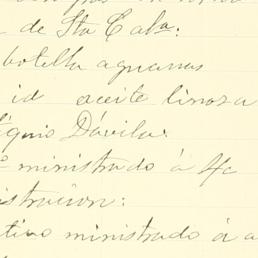 de Sta Cala:
botella aguarras
id aceite linosa
Dávila.
ministrado á la
istracion:
tivo ministrado á a